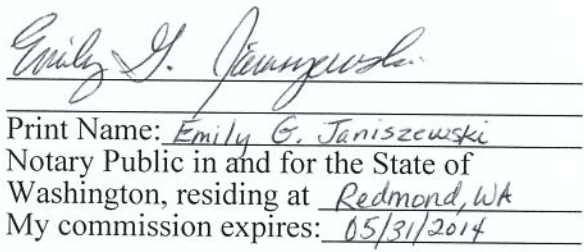 Emily G. Janiszewski
Print Name: Emily G. Janiszewski
Notary Public in and for the State of
Washington, residing at Redmond, WA
My commission expires: 05/31/2014